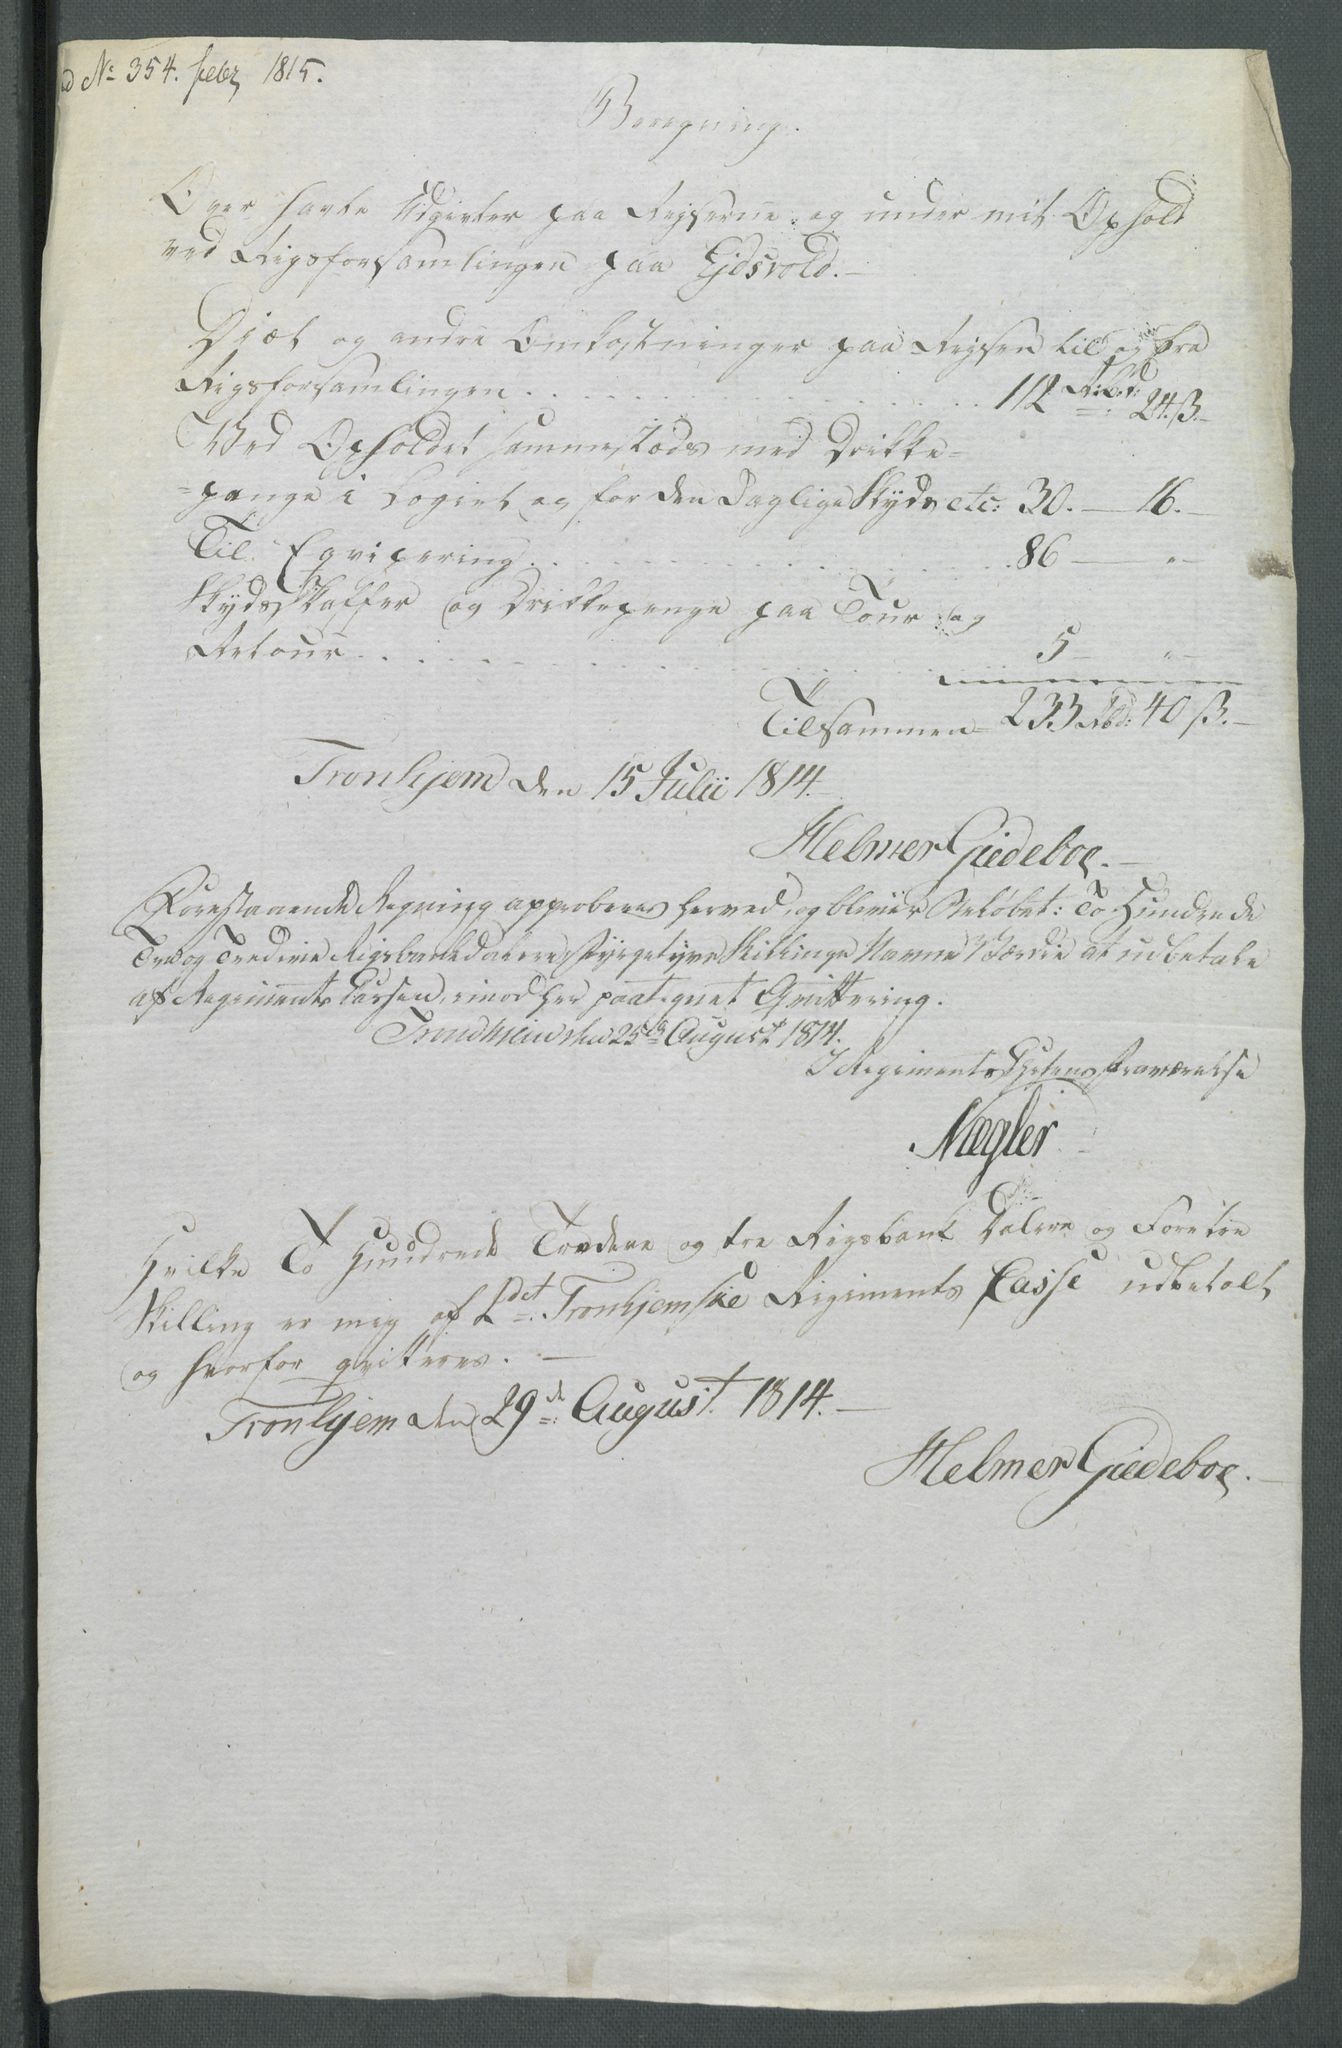 ad No 354. febr 1815.
Beregning.
Over havte Udgivter paa Rejserne og under mit Ophold
ved Rigsforsamlingen paa Ejdsvold.—
Diæt og andre Omkostninger paa Rejsen til og fra
Rigsforsamlingen . . . . . . . . . . 112 Rbd: 24 ß.—
Ved Opholdet sammestæds med Drikke=
=penge i Logiet og for den Daglige Skyds etc: 30.— 16.—
Til Eqvipering . . . . . . . . . . 86 — " —
Skydsskaffer og Drikkepenge paa Tour og
Retour . . . . . . . . . . 5 — " —
Tilsammen 233 Rbd: 40 ß.—
Tronhjem den 15 Julii 1814.
Helmer Giedeboe.—
Forestaaende Regning approberes herved, og bliver Beløbet: To Hundrede
Tre og Tredive Rigsbankdalere Fyrgetyve Skillinge Navne Værdie at udbetale
af Regiments Cassen, imod her paategnet Qvittering.
Trondhjem den 25de August 1814.
I Regiments Chefens Fraværelse
Nægler
Hvilke To Hundrede Tredeve og tre Rigsbank Dalere og Foretive
Skilling er mig af 2det Tronhjemske Regiments Casse udbetalt
og hvorfor qvitteres.—
Tronhjem den 29de August. 1814.—
Helmer Giedeboe.—